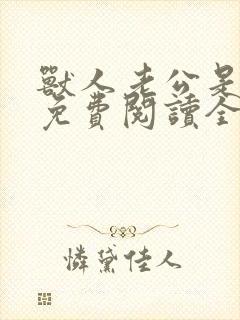 獸人老公是
免費閱讀全
憐黛佳人